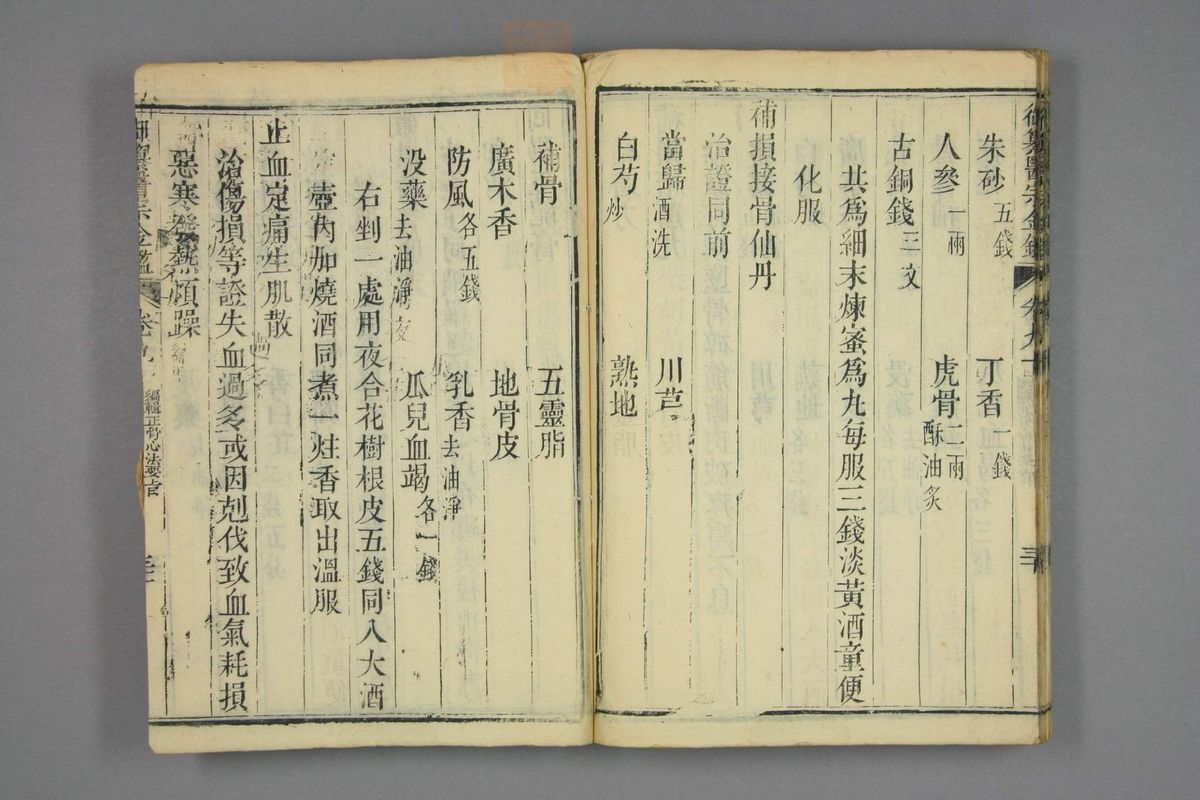 朱砂五錢 丁香一錢
人參一兩 虎骨二兩酥油炙
古銅錢三文
共爲細末煉蜜爲丸每服三錢淡黃酒童便
化服
補損接骨仙丹
治證同前
當歸酒洗 川芎
白芍炒 熟地
補骨 五靈脂
廣木香 地骨皮
防風各五錢 乳香去油淨
没藥去油淨 瓜兒血竭各一錢
右剉一處用夜合花樹根皮五錢同入大酒
壺內加燒酒同煮一炷香取出溫服
止血定痛生肌散
治傷損等證失血過多或因剋伐致血氣耗損
惡寒發熱煩躁
御纂醫宗金鑑 卷九 編輯正骨心法要旨